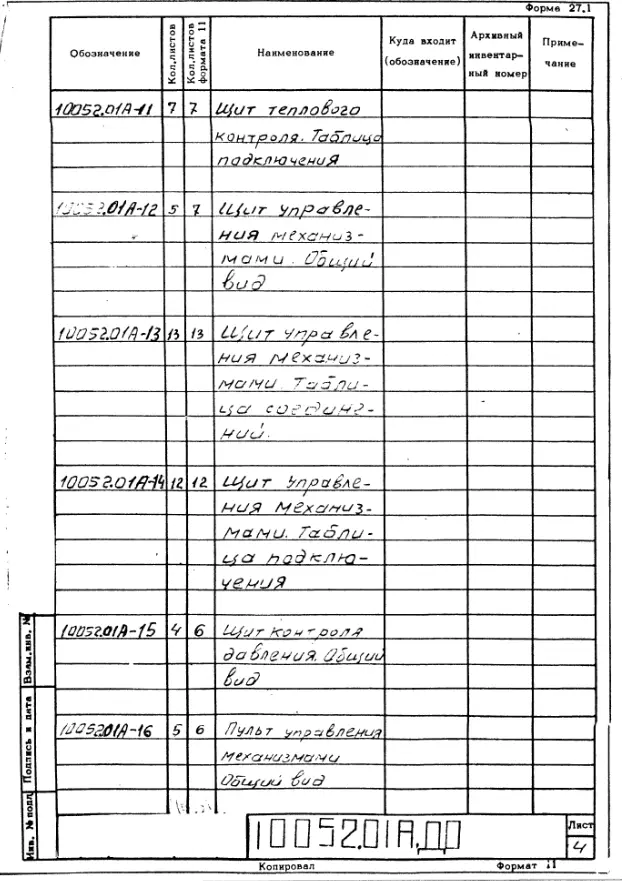 Форма 27.1
Обозначение Кол.листов Кол.листов формата 11 Наименование Куда входит (обозначение) Архивный инвентарный номер Примечание
10052.01А-11 7 7 Щит теплового
контроля. Таблица
подключения
10052.01А-12 5 7 Щит управле-
ния механиз-
мами. Общий
вид
10052.01А-13 13 13 Щит управле-
ния механиз-
мами. Табли-
ца соедине-
ний.
10052.01А-14 12 12 Щит управле-
ния механиз-
мами. Табли-
ца подклю-
чения
10052.01А-15 4 6 Щит контроля
давления. Общий
вид
10052.01А-16 5 6 Пульт управления
механизмами
Общий вид
Взам.инв. №
Подпись и дата
Инв. № подл
10052.01А.ДР
Лист
4
Копировал Формат 11